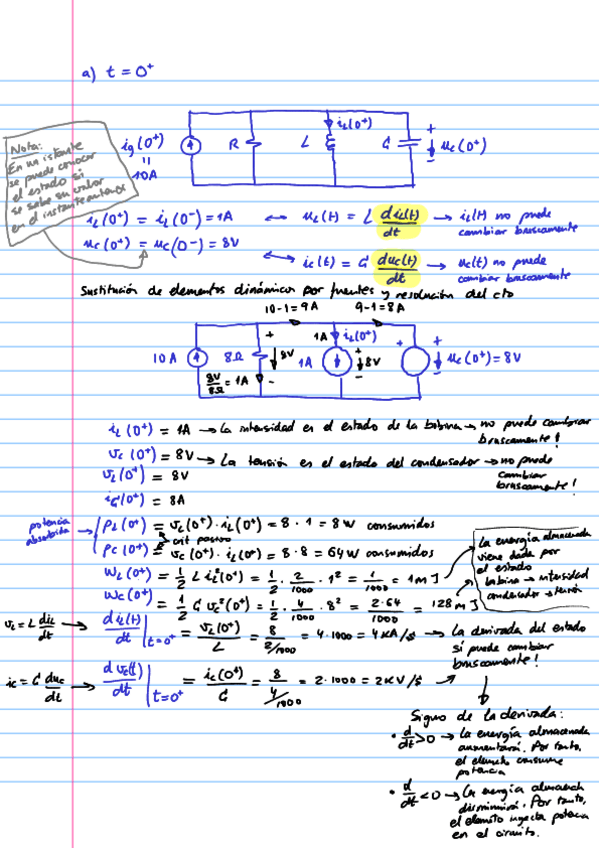 a) t = 0⁺
Nota:
En un istante
se puede conocer
el estado si
se sabe su valor
en el instante anterior
ig(0⁺)
=
10A
R
L
iL(0⁺)
C
+
uc(0⁺)
−
iL(0⁺) = iL(0⁻) = 1A ↔ uL(t) = L diL(t)/dt → iL(t) no puede
cambiar bruscamente
uc(0⁺) = uc(0⁻) = 8V
↔ ic(t) = C duc(t)/dt → uc(t) no puede
cambiar bruscamente
Sustitución de elementos dinámicos por fuentes y resolución del cto
10-1=9A 9-1=8A
10A
8Ω
+
8V
−
8V/8Ω = 1A
1A iL(0⁺)
1A
+
8V
−
+
+
uc(0⁺)=8V
−
iL(0⁺) = 1A → La intensidad es el estado de la bobina → no puede cambiar
bruscamente!
vc(0⁺) = 8V → La tensión es el estado del condensador → no puede
cambiar
bruscamente!
vL(0⁺) = 8V
ic(0⁺) = 8A
potencia
absorbida
PL(0⁺) = vL(0⁺) · iL(0⁺) = 8 · 1 = 8W consumidos
crit pasivo
Pc(0⁺) = vc(0⁺) · iL(0⁺) = 8 · 8 = 64W consumidos
WL(0⁺) = 1/2 L iL²(0⁺) = 1/2 · 2/1000 · 1² = 1/1000 = 1mJ
Wc(0⁺) = 1/2 C vc²(0⁺) = 1/2 · 4/1000 · 8² = 2·64/1000 = 128mJ
La energía almacenada
viene dada por
el estado
bobina → intensidad
condensador → tensión
vL = L diL/dt → diL(t)/dt |t=0⁺ = vL(0⁺)/L = 8/2/1000 = 4·1000 = 4KA/s → La derivada del estado
sí puede cambiar
bruscamente!
ic = C duc/dt → dvc(t)/dt |t=0⁺ = ic(0⁺)/C = 8/4/1000 = 2·1000 = 2KV/s
Signo de la derivada:
• d/dt > 0 → La energía almacenada
aumentará. Por tanto,
el elemento consume
potencia
• d/dt < 0 → La energía almacenada
disminuirá. Por tanto,
el elemento inyecta potencia
en el circuito.